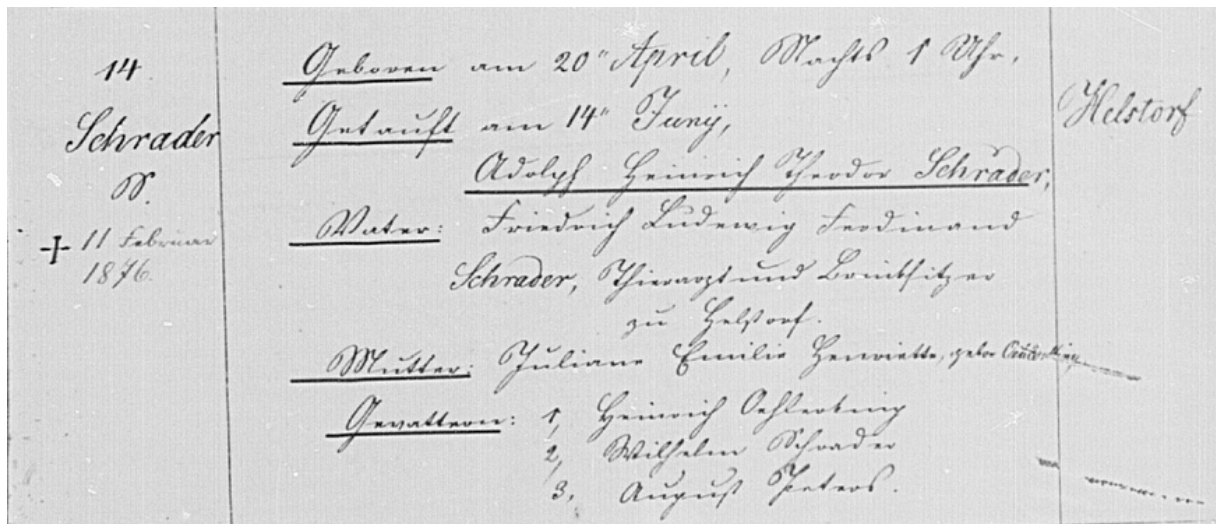 14.
Schrader
S.
+ 11 Februar
1876.
Geboren am 20" April, Nachts 1 Uhr,
Getauft am 14" Juny,
Adolph Heinrich Theodor Schrader,
Vater: Friedrich Ludewig Ferdinand
Schrader, Thierarzt und Brinksitzer
zu Helstorf.
Mutter: Juliane Emilie Henriette, gebor
Gevattern: 1, Heinrich Oehlerking
2, Wilhelm Schrader
3, August Peters.
Helstorf